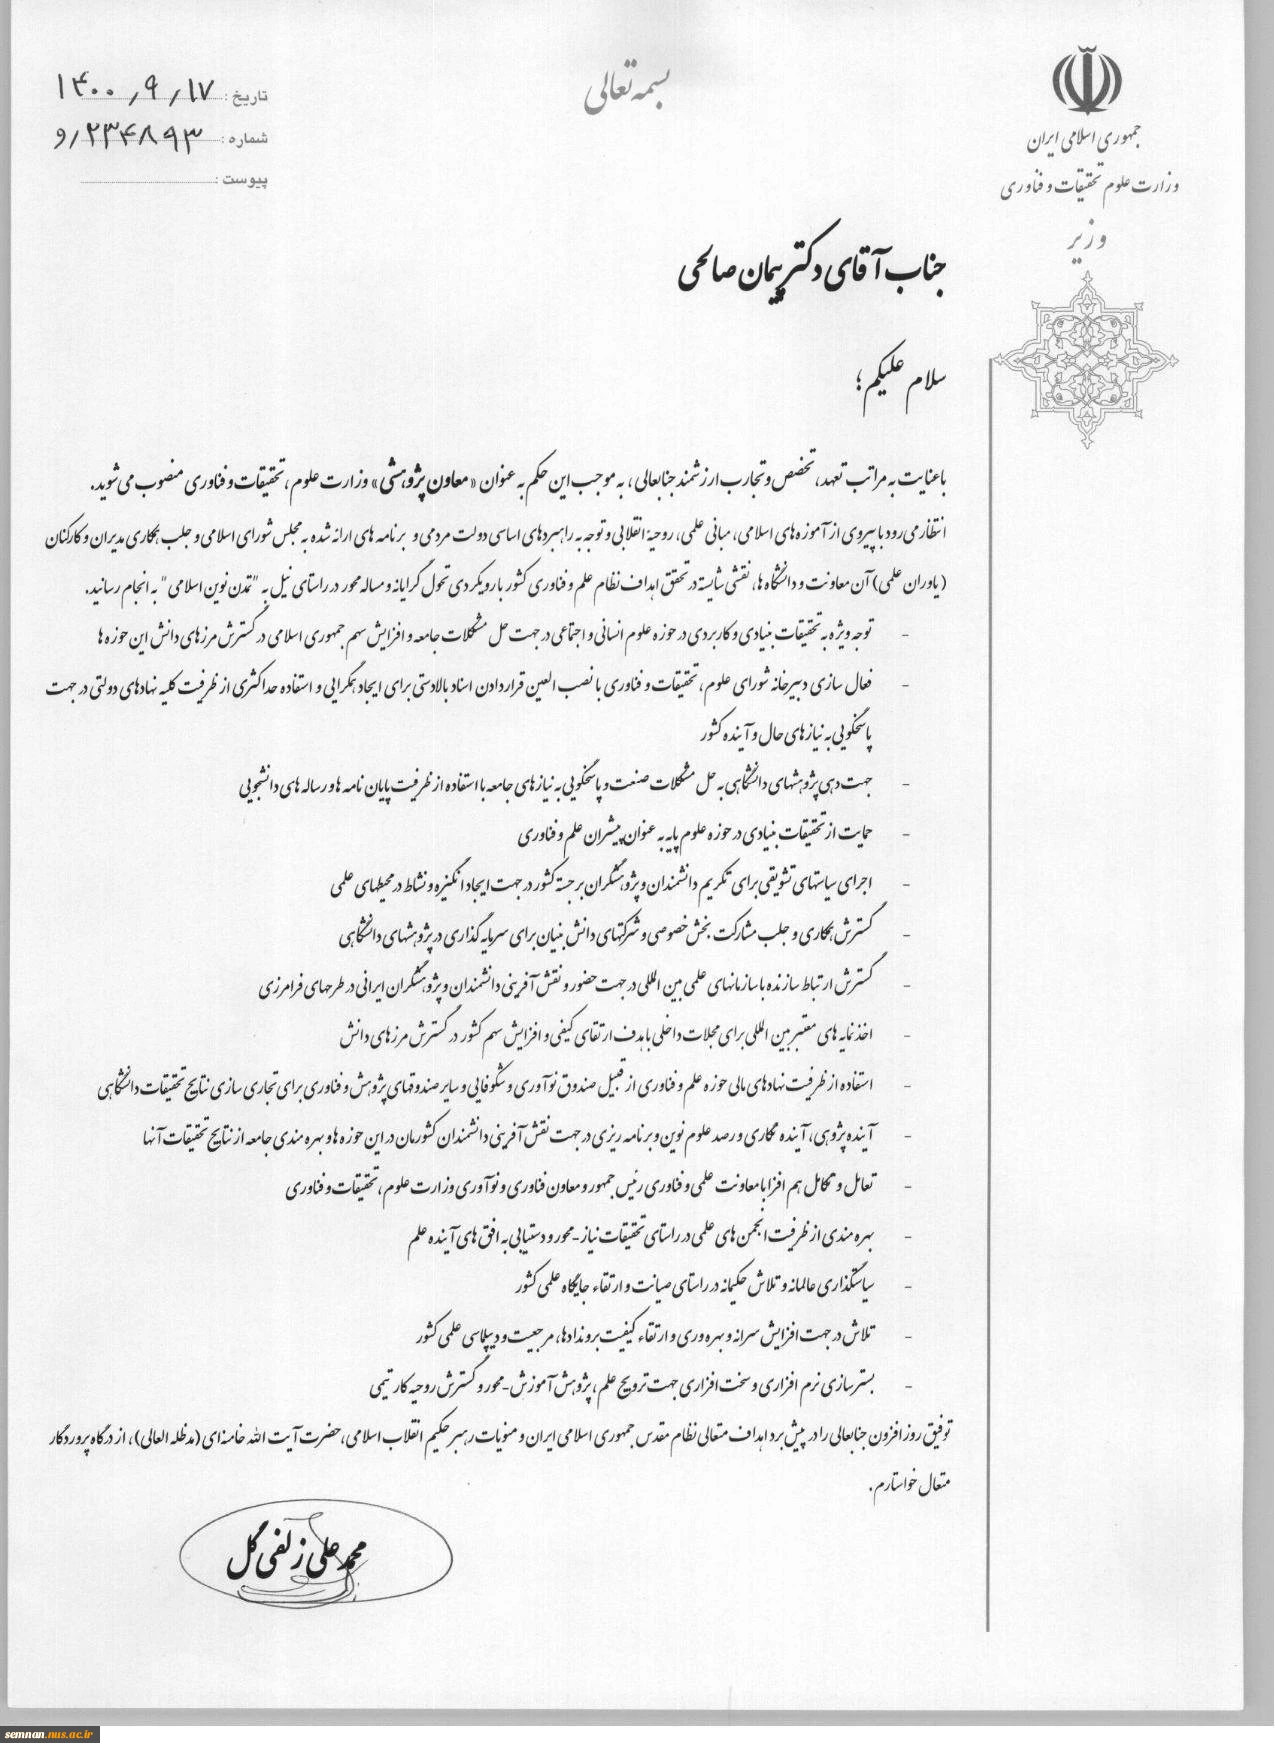 بسمه تعالی
جمهوری اسلامی ایران
وزارت علوم تحقیقات و فناوری
وزیر
تاریخ : ۱۴۰۰/۹/۱۷
شماره : ۲۳۴۸۹۳/و
پیوست :
جناب آقای دکتر پیمان صالحی
سلام علیکم؛
با عنایت به مراتب تعهد، تخصص و تجارب ارزشمند جنابعالی، به موجب این حکم به عنوان «معاون پژوهشی» وزارت علوم، تحقیقات و فناوری منصوب می‌شوید.
انتظار می رود با پیروی از آموزه های اسلامی، مبانی علمی، روحیۀ انقلابی و توجه به راهبردهای اساسی دولت مردمی و برنامه های ارائه شده به مجلس شورای اسلامی و جلب همکاری مدیران و کارکنان
(یاوران علمی) آن معاونت و دانشگاه ها، نقشی شایسته در تحقق اهداف نظام علم و فناوری کشور با رویکردی تحول گرایانه و مساله محور در راستای نیل به "تمدن نوین اسلامی" به انجام رسانید.
- توجه ویژه به تحقیقات بنیادی و کاربردی در حوزه علوم انسانی و اجتماعی در جهت حل مشکلات جامعه و افزایش سهم جمهوری اسلامی در گسترش مرزهای دانش این حوزه ها
- فعال سازی دبیرخانه شورای علوم، تحقیقات و فناوری با نصب العین قرار دادن اسناد بالادستی برای ایجاد همگرایی و استفاده حداکثری از ظرفیت کلیه نهادهای دولتی در جهت
پاسخگویی به نیازهای حال و آینده کشور
- جهت دهی پژوهشهای دانشگاهی به حل مشکلات صنعت و پاسخگویی به نیازهای جامعه با استفاده از ظرفیت پایان نامه ها و رساله های دانشجویی
- حمایت از تحقیقات بنیادی در حوزه علوم پایه به عنوان پیشران علم و فناوری
- اجرای سیاستهای تشویقی برای تکریم دانشمندان و پژوهشگران برجسته کشور در جهت ایجاد انگیزه و نشاط در محیطهای علمی
- گسترش همکاری و جلب مشارکت بخش خصوصی و شرکتهای دانش بنیان برای سرمایه گذاری در پژوهشهای دانشگاهی
- گسترش ارتباط سازنده با سازمانهای علمی بین المللی در جهت حضور و نقش آفرینی دانشمندان و پژوهشگران ایرانی در طرحهای فرامرزی
- اخذ نمایه های معتبر بین المللی برای مجلات داخلی با هدف ارتقای کیفی و افزایش سهم کشور در گسترش مرزهای دانش
- استفاده از ظرفیت نهادهای مالی حوزه علم و فناوری از قبیل صندوق نوآوری و شکوفایی و سایر صندوقهای پژوهش و فناوری برای تجاری سازی نتایج تحقیقات دانشگاهی
- آینده پژوهی، آینده نگاری و رصد علوم نوین و برنامه ریزی در جهت نقش آفرینی دانشمندان کشورمان در این حوزه ها و بهره مندی جامعه از نتایج تحقیقات آنها
- تعامل و تکامل هم افزا با معاونت علمی و فناوری رئیس جمهور و معاون فناوری و نوآوری وزارت علوم، تحقیقات و فناوری
- بهره مندی از ظرفیت انجمن های علمی در راستای تحقیقات نیاز-محور و دستیابی به افق های آینده علم
- سیاستگذاری عالمانه و تلاش حکیمانه در راستای صیانت و ارتقاء جایگاه علمی کشور
- تلاش در جهت افزایش سرانه و بهره وری و ارتقاء کیفیت بروندادها، مرجعیت و دیپلماسی علمی کشور
- بسترسازی نرم افزاری و سخت افزاری جهت ترویج علم، پژوهش آموزش-محور و گسترش روحیه کار تیمی
توفیق روز افزون جنابعالی را در پیش برد اهداف متعالی نظام مقدس جمهوری اسلامی ایران و منویات رهبر حکیم انقلاب اسلامی، حضرت آیت الله خامنه ای (مدظله العالی)، از درگاه پروردگار
متعال خواستارم.
محمد علی زلفی گل
semnan.nus.ac.ir